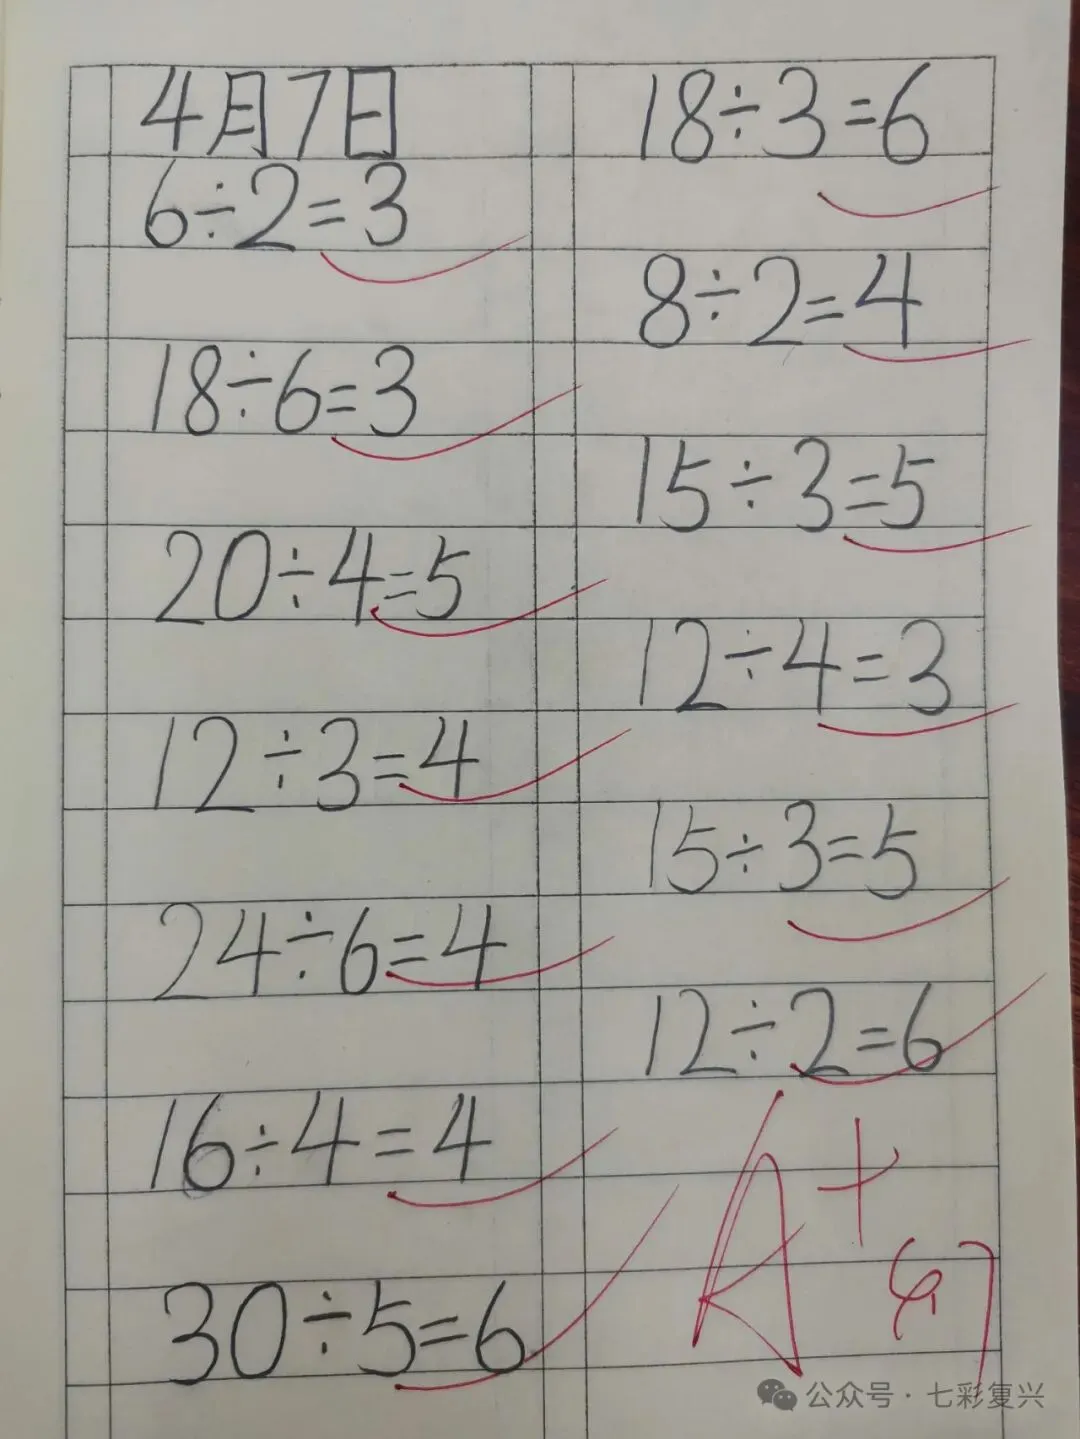 4月7日
6÷2=3
18÷6=3
20÷4=5
12÷3=4
24÷6=4
16÷4=4
30÷5=6
18÷3=6
8÷2=4
15÷3=5
12÷4=3
15÷3=5
12÷2=6
A+
公众号·七彩复兴